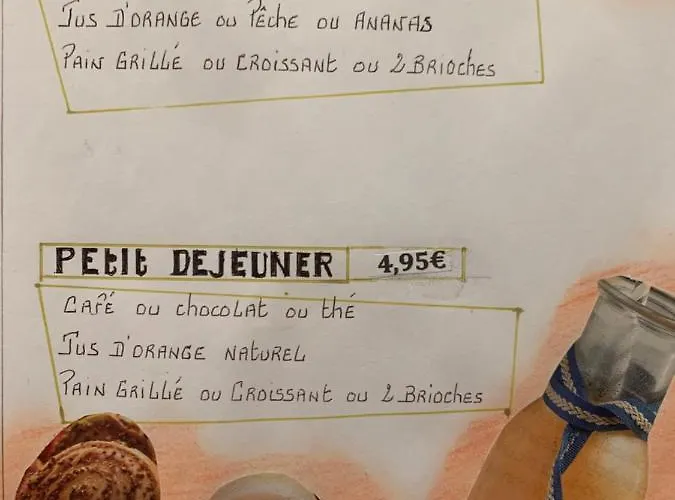 Jus D'ORANGE ou Pêche ou ANANAS
PAIN GRILLÉ ou CROISSANT ou 2 BRIOches
PEtit DEJEUNER 4,95€
CAFÉ ou chocoLAt ou thé
Jus D'ORANGE NATUREL
PAIN GRILLÉ ou CROISSANT ou 2 BRIOches